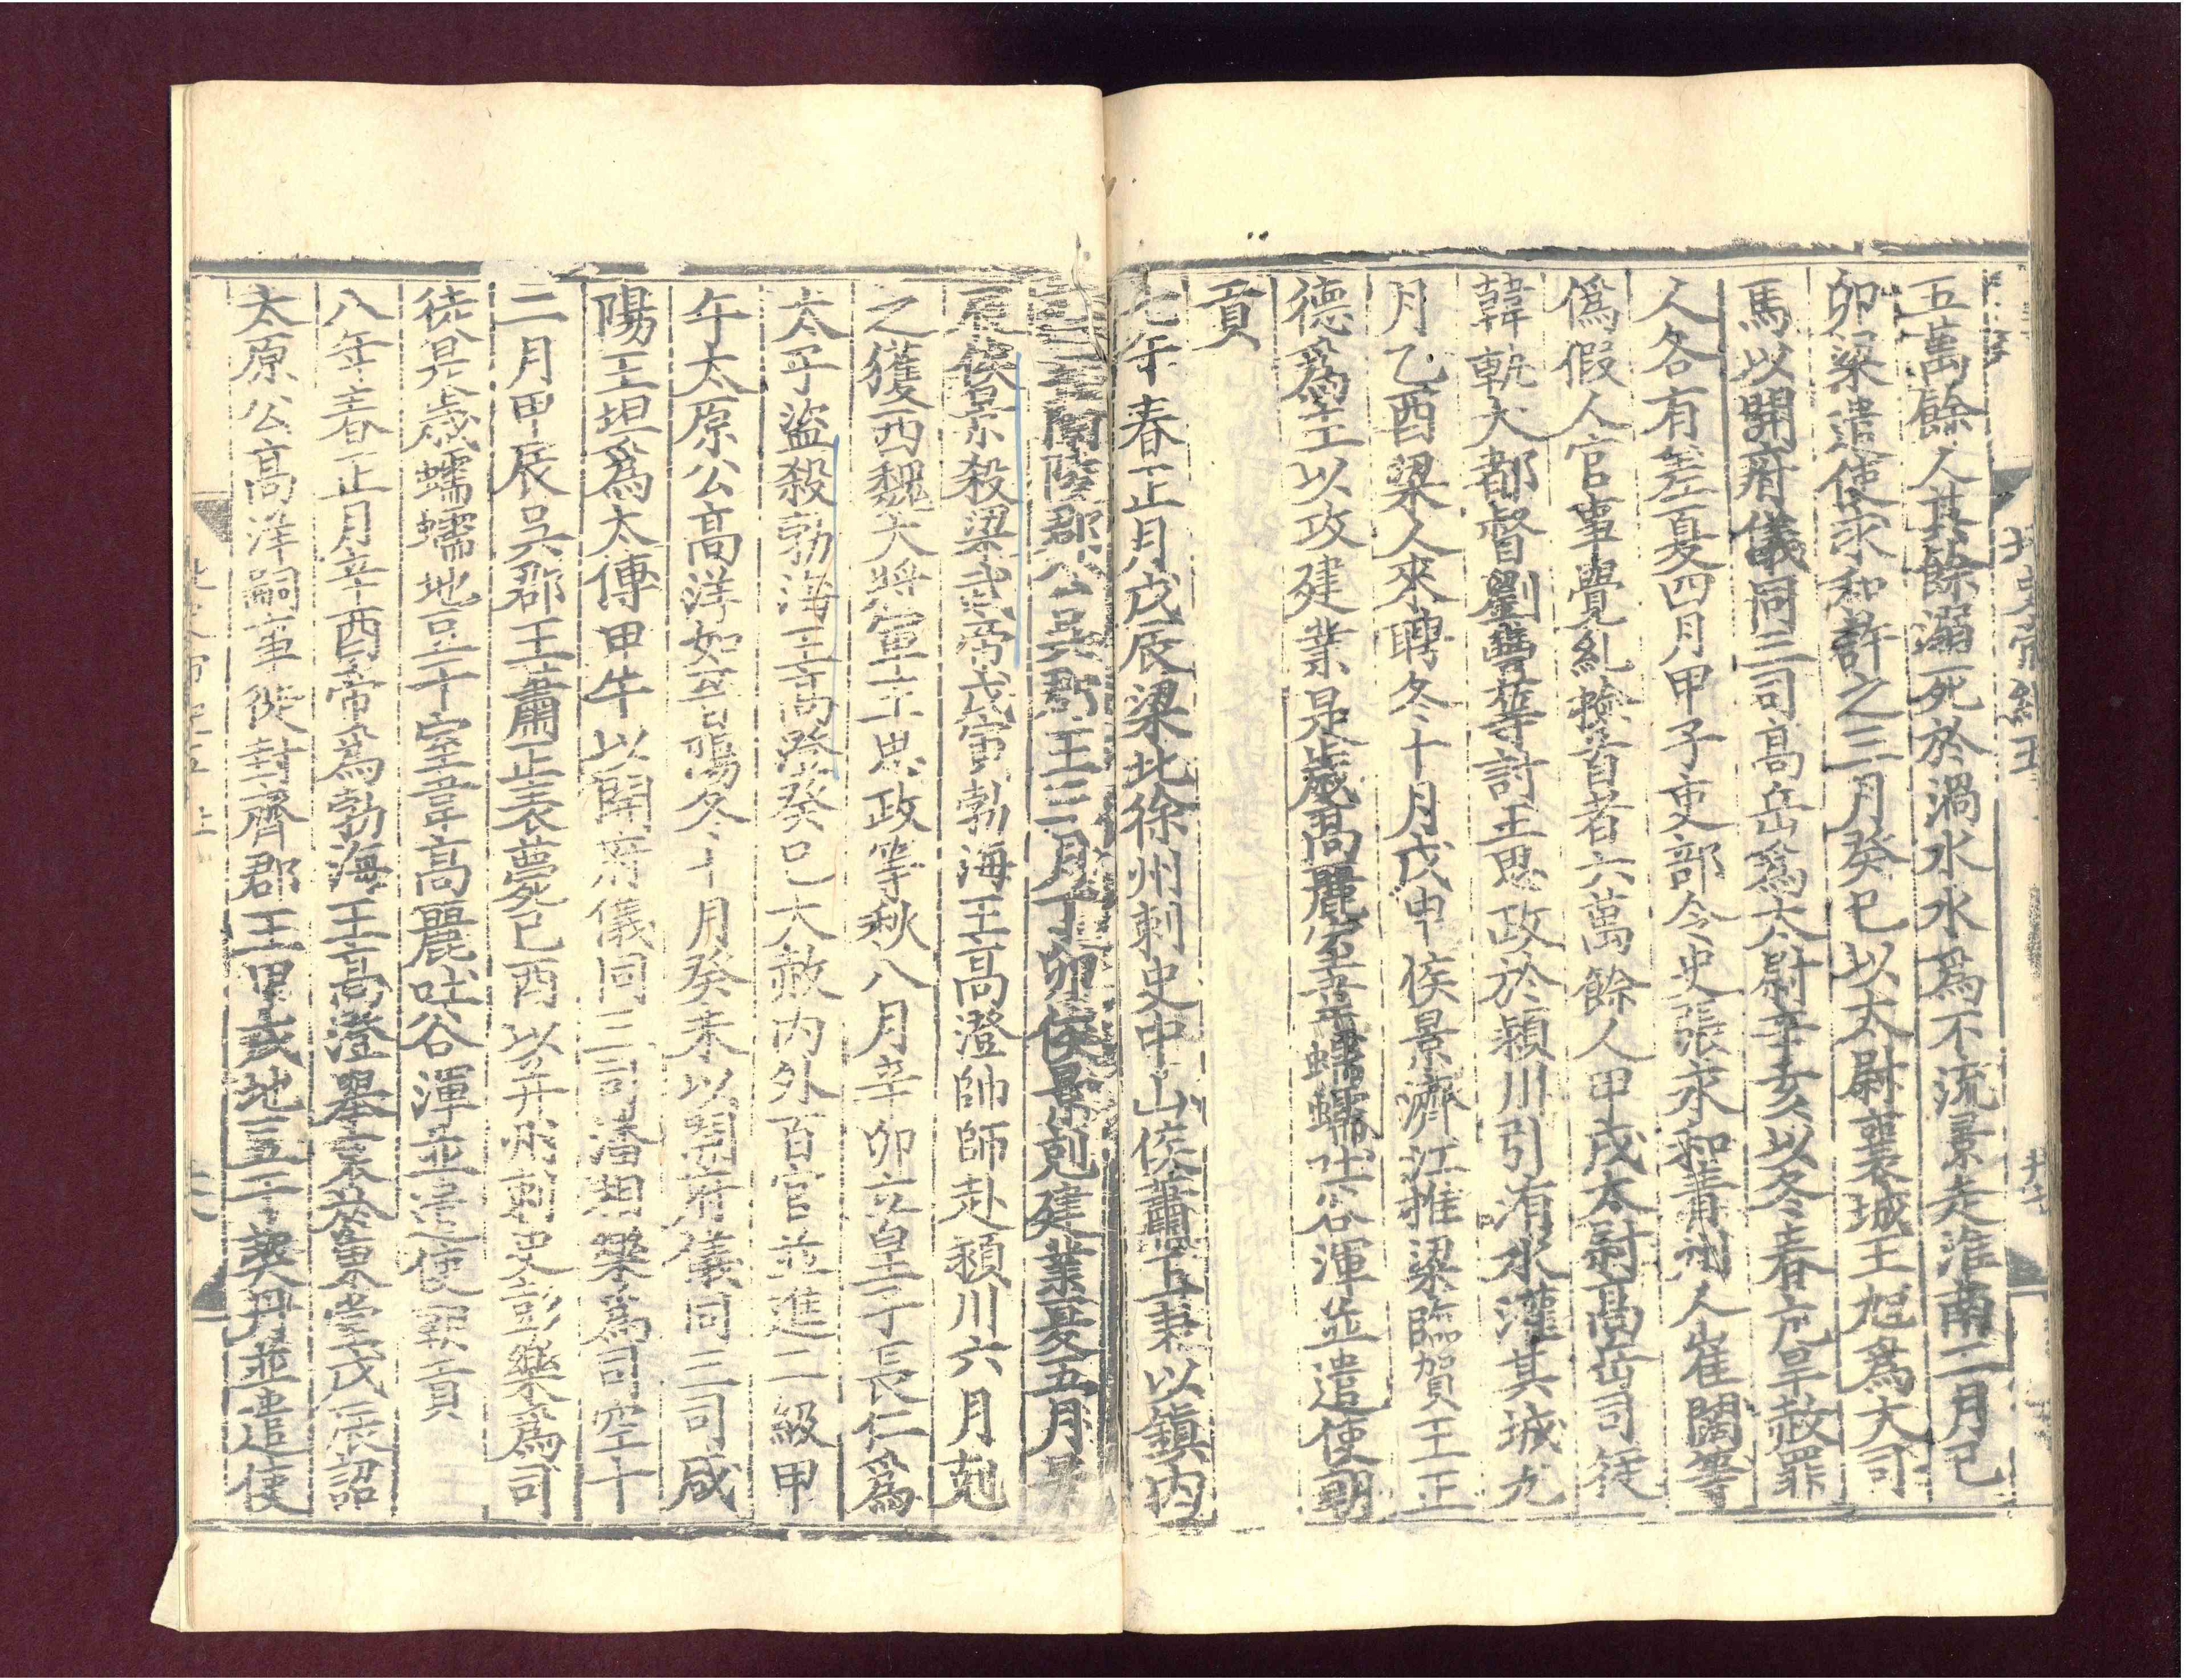 五萬餘人其餘溺死於渦水水爲不流景走淮南二月己
卯梁遣使求和許之三月癸巳以太尉襄城王旭爲大司
馬以開府儀同三司高岳爲太尉辛亥以冬春亢旱赦罪
人各有差夏四月甲子吏部令史張永和青州人崔闊等
僞假人官事覺糺撿首者六萬餘人甲戌太尉高岳司徒
韓軌大都督劉豊等討王思政於潁川引洧水灌其城九
月乙酉梁人來聘冬十月戊申侯景濟江推梁臨賀王正
德爲主以攻建業是歲高麗室韋蠕蠕吐谷渾並遣使朝
貢
七年春正月戊辰梁北徐州刺史中山侯蕭正表以鎮内
蘭陵郡公吳郡王三月丁卯侯景剋建業夏五月
辰侯景殺梁武帝戊寅勃海王高澄帥師赴潁川六月剋
之獲西魏大將軍王思政等秋八月辛卯立皇子長仁爲
太子盜殺勃海王高澄癸巳大赦内外百官並進二級甲
午太原公高洋如晉陽冬十月癸未以開府儀同三司咸
陽王坦爲太傅甲午以開府儀同三司潘相樂爲司空十
二月甲辰吳郡王蕭正表薨己酉以并州刺史彭樂爲司
徒是歲蠕蠕地豆干室韋高麗吐谷渾並遣使朝貢
八年春正月辛酉帝爲勃海王高澄舉哀於東堂戊辰詔
太原公高洋嗣事徙封齊郡王甲戌地豆于契丹並遣使